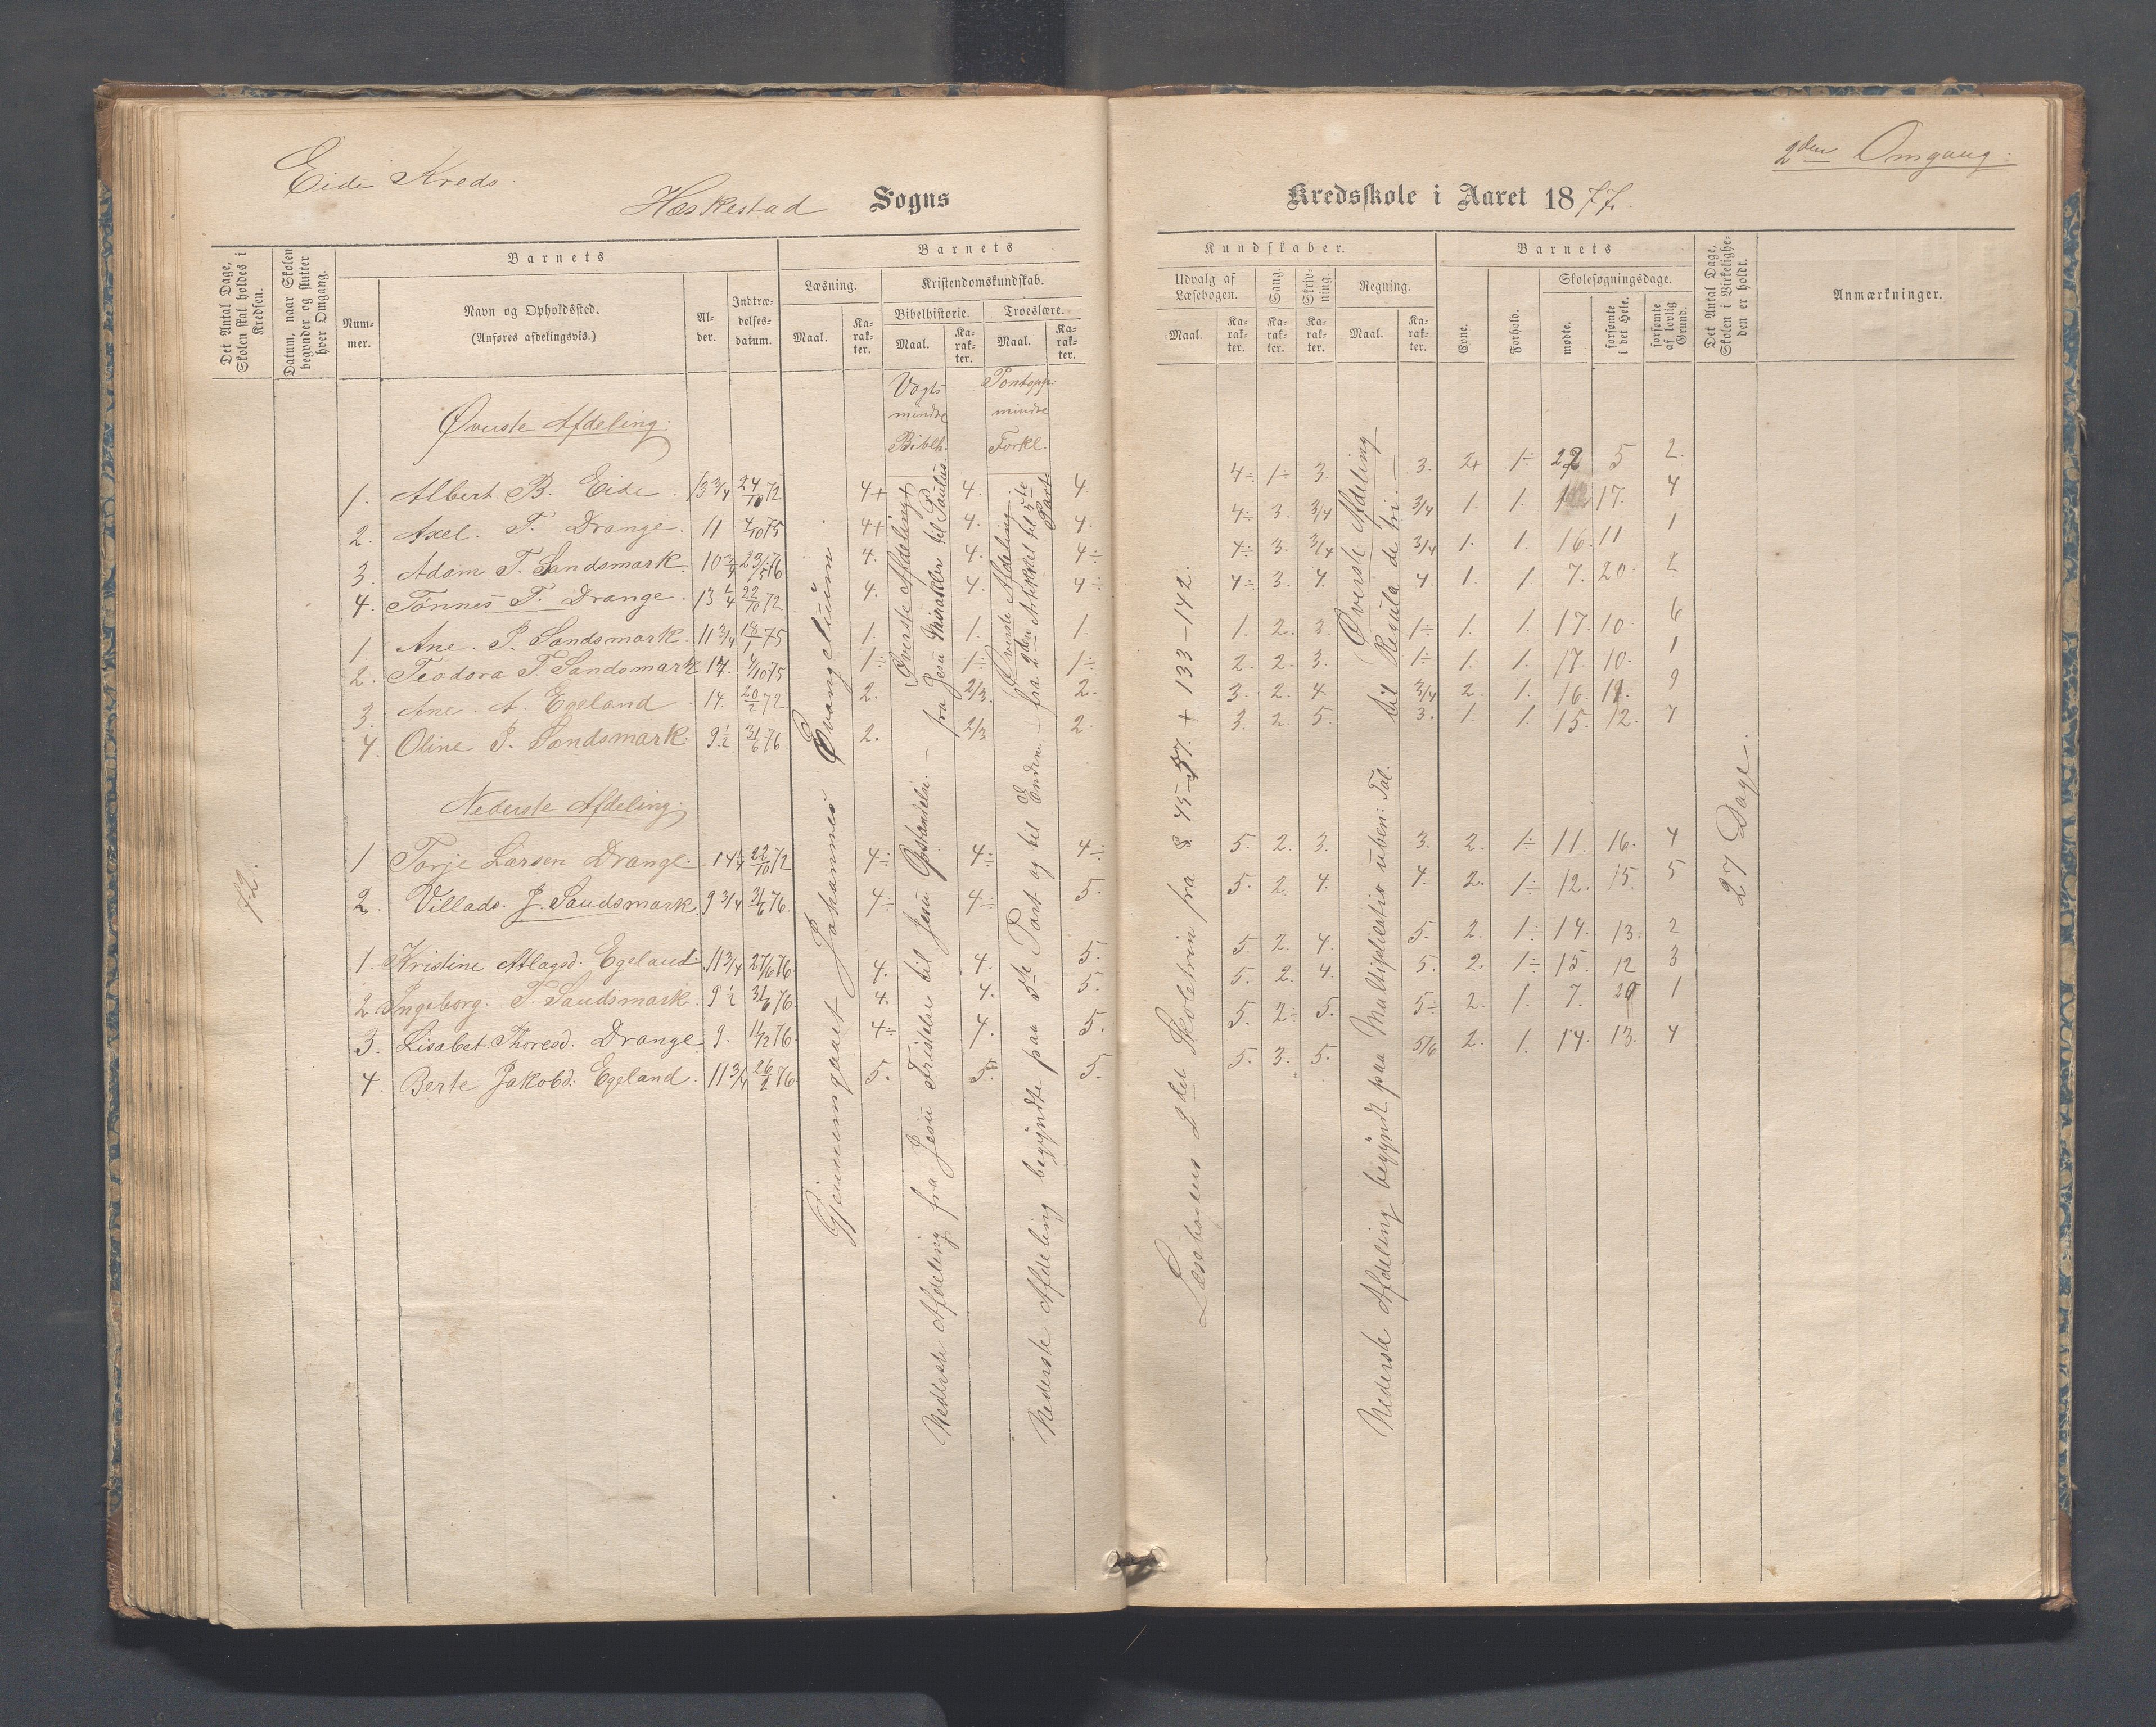 Eide Kreds.
Heskestad Sogns
2den Omgang.
Kredsskole i Aaret 1877.
Det Antal Dage, Skolen skal holdes i Kredsen.
Datum, naar Skolen begynder og slutter hver Omgang.
Barnets
Num-mer.
Navn og Opholdssted.
(Anføres afdelingsvis.)
Al-der.
Indtræ-delses-datum.
Barnets
Læsning.
Maal.
Ka-rak-ter.
Kristendomskundskab.
Bibelhistorie.
Maal.
Ka-rak-ter.
Troeslære.
Maal.
Ka-rak-ter.
Kundskaber.
Udvalg af Læsebogen.
Maal.
Ka-rak-ter.
Sang.
Ka-rak-ter.
Skriv-ning.
Ka-rak-ter.
Regning.
Maal.
Ka-rak-ter.
Barnets
Evne.
Forhold.
Skolesøgningsdage.
mødte.
forsømte i det Hele.
forsømte af lovlig Grund.
Det Antal Dage, Skolen i Virkelighe-den er holdt.
Anmærkninger.
Vogts mindre Biblh.
Pontopp. mindre Forkl.
Øverste Afdeling.
1. Albert B. Eide. 13 3/4 24/10 72 4+ 4. 4. 4÷ 1÷ 3. 3. 2+ 1÷ 22 5 2.
2. Axel. T. Drange. 11 4/10 75 4+ 4. 4. 4÷ 3. 3/4 3/4 1. 1. 17. 4
3. Adam T. Sandsmark. 10 3/4 23/5 76 4. 4. 4÷ 4÷ 3. 3/4 3/4 1. 1. 16. 11 1
4. Tønnes T. Drange. 13 1/4 22/10 72 4. 4. 4÷ 4÷ 3. 4. 4. 1. 1. 7. 20. 2
1. Ane. P. Sandsmark. 11 3/4 18/1 75 1. 1. 1. 1. 2. 3. 1÷ 1. 1. 17. 10. 6
2. Teodora T. Sandsmark 4/10 75 1÷ 1÷ 1÷ 2. 2. 3. 1÷ 1. 1. 17. 10. 1
3. Ane. A. Egeland. 14. 20/2 72 2. 2/3 2. 3. 2. 4. 3/4 2. 1. 16. 11. 9
4. Oline P. Sandsmark. 9 1/2 31/6 76. 2. 2/3 2. 3. 2. 5. 3. 1. 1. 15. 12. 7
Nederste Afdeling.
1 Torje Larsen Drange. 14 1/4 22/10 72 4÷ 4÷ 4÷ 5. 2. 3. 3. 2. 1÷ 11. 16. 4
2. Villads. J. Sandsmark. 9 3/4 31/6 76. 4÷ 4÷ 5. 5. 2. 4. 4. 2. 1÷ 12. 15. 5
1. Kristine Aslagsd. Egeland. 11 3/4 27/6 76. 4. 4. 5. 5. 2. 4. 5. 2. 1÷ 14. 13. 2
2 Ingeborg. T. Sandsmark. 9 1/2 31/6 76. 4. 4. 5. 5. 2. 4. 5. 2. 1÷ 15. 12 3
3. Lisabet Thoresd. Drange 9. 14/2 76 4÷ 4. 5. 5. 2÷ 5. 5÷ 2. 1. 7. 20 1
4. Berte Jakobd. Egeland. 11 3/4 26/2 76. 5. 5. 5. 5. 3. 5. 5/6 2. 1. 14. 13. 4
72.
Gjennemgaaet Johannes Evangelium.
Øverste Afdeling
fra Jesu Mirakler til Paulus
Nederste Afdeling fra Jesu Fristelse til Jesu Opstandelse.
Øverste Afdeling
fra 2den Artikkel til 5te Part
Nederste Afdeling begyndte paa 5te Part og til Enden.
Læsebogens 2det Skoletrin fra § 45-57. + 133-142.
Øverste Afdeling
til Regula de tri.
Nederste Afdeling begyndt paa Multiplicatio uben: Tal.
27 Dage.